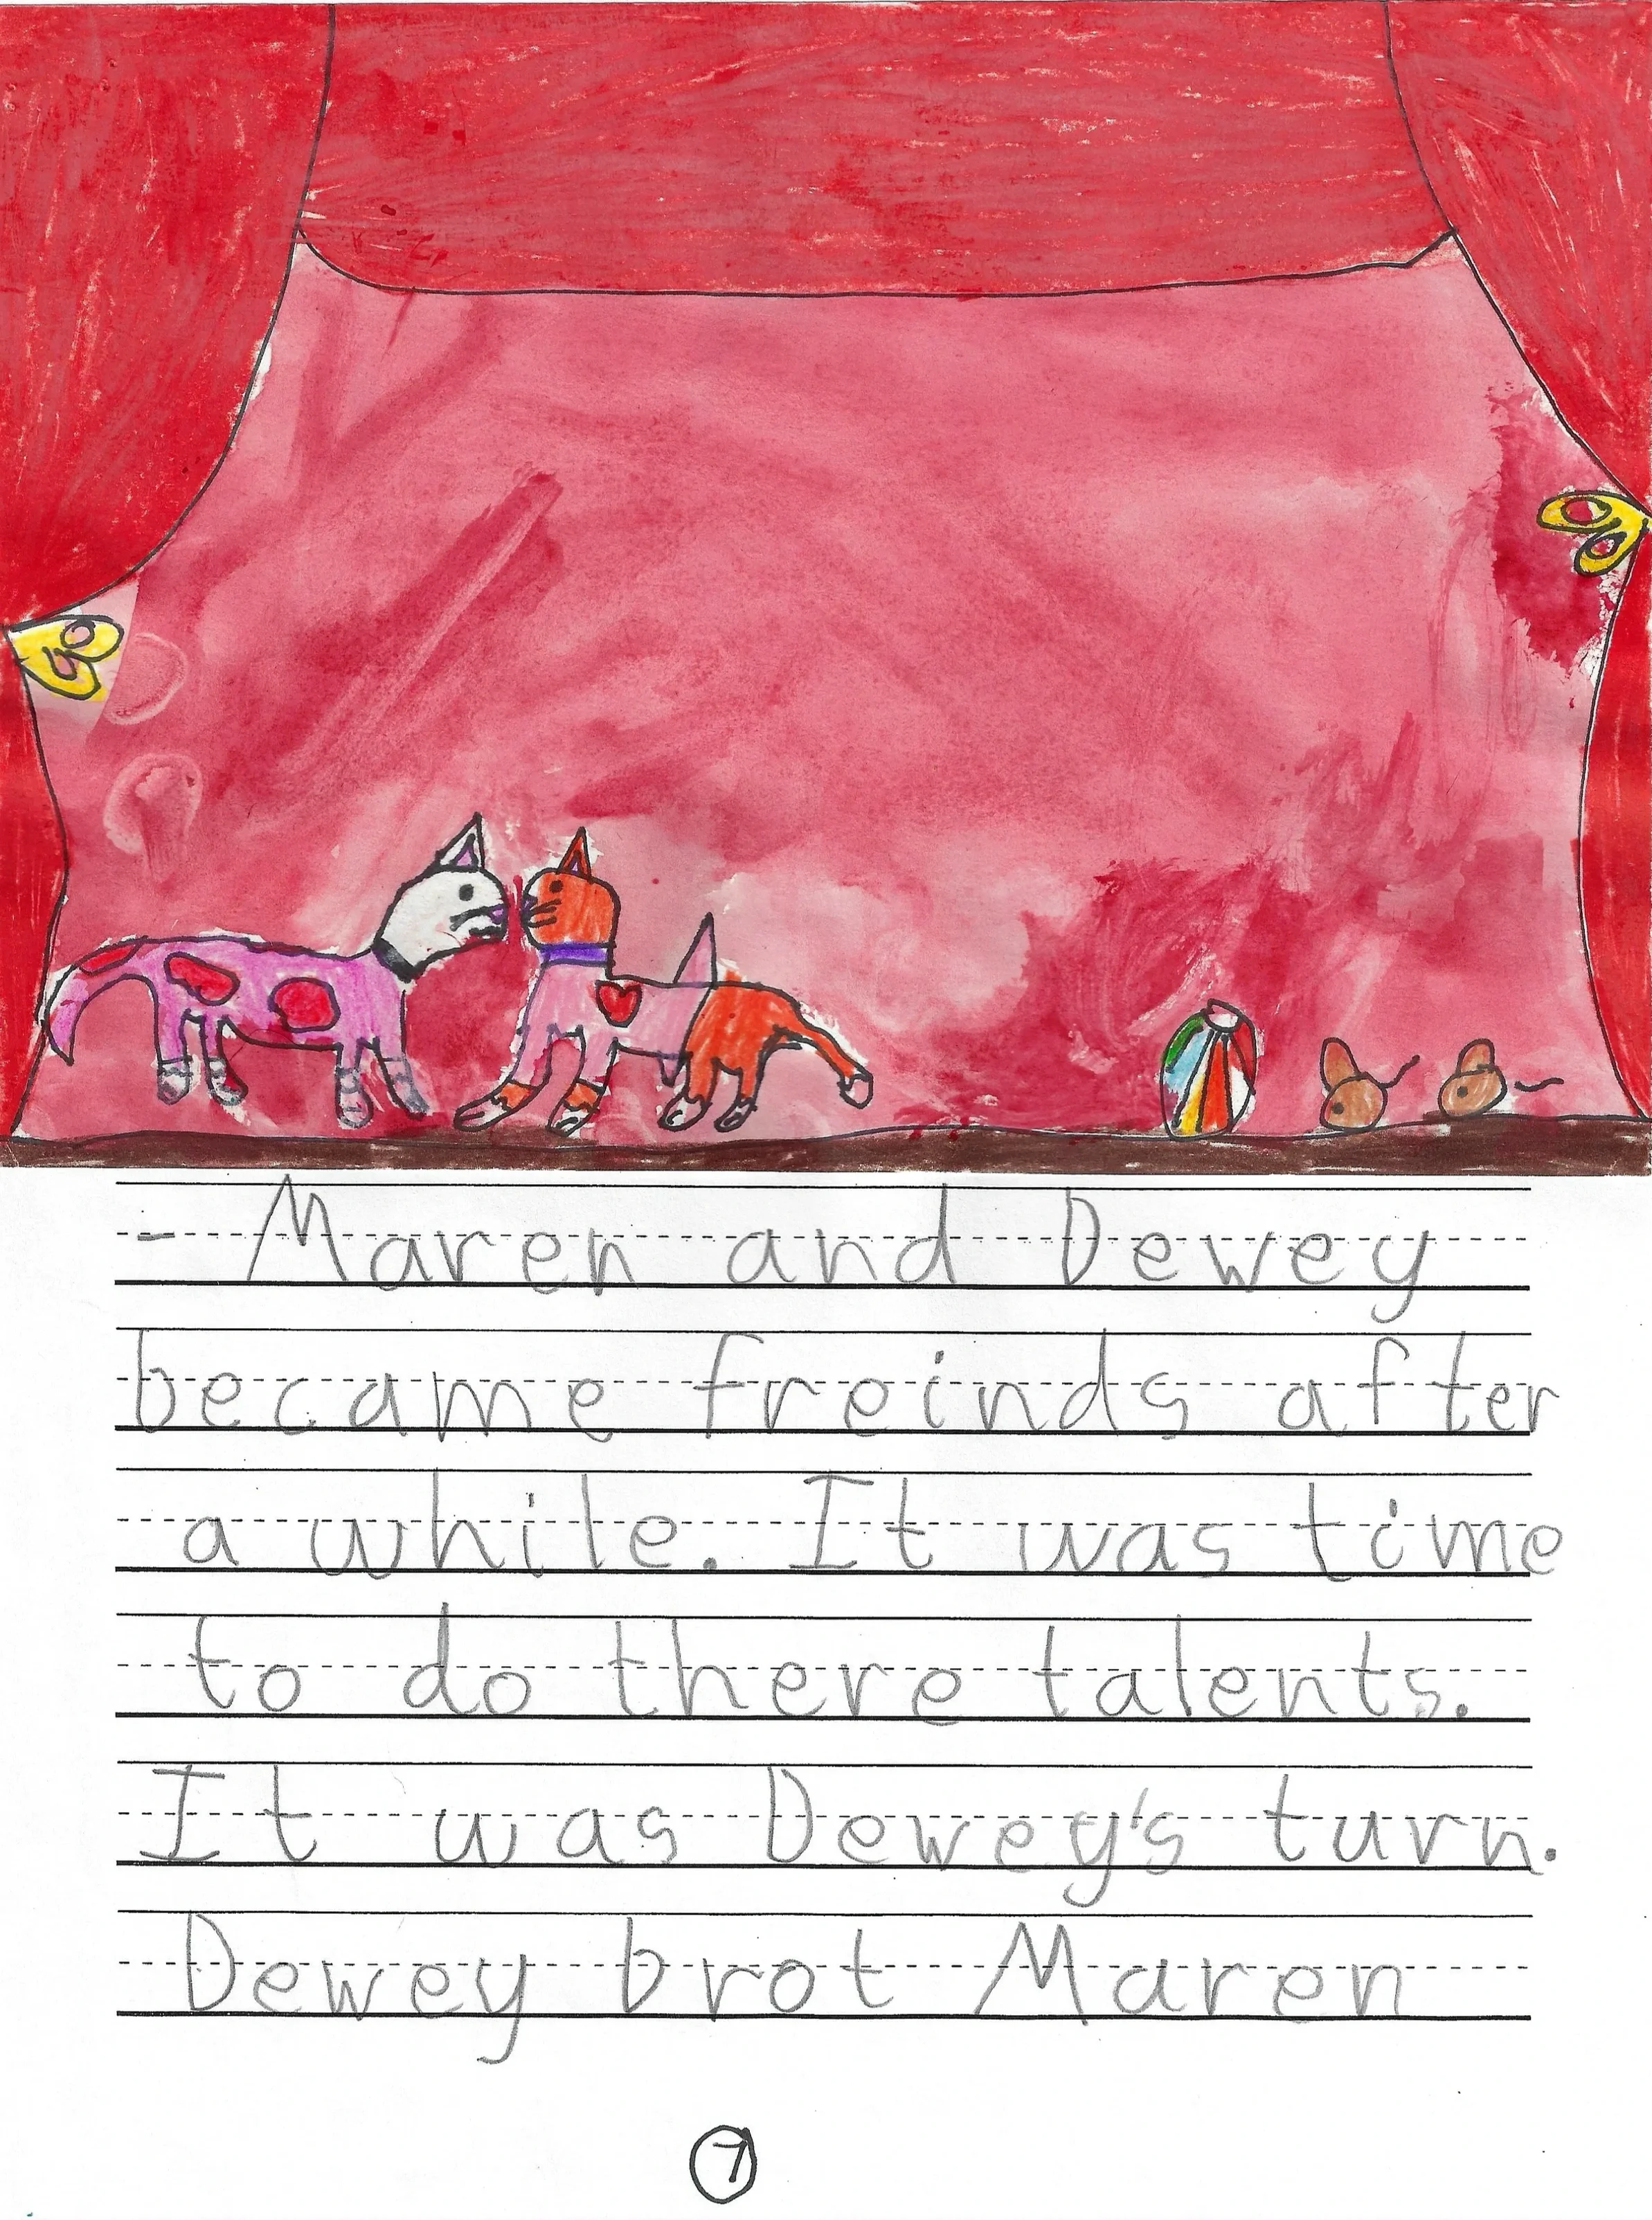 - Maren and Dewey
became freinds after
a while. It was time
to do there talents.
It was Dewey's turn.
Dewey brot Maren
7